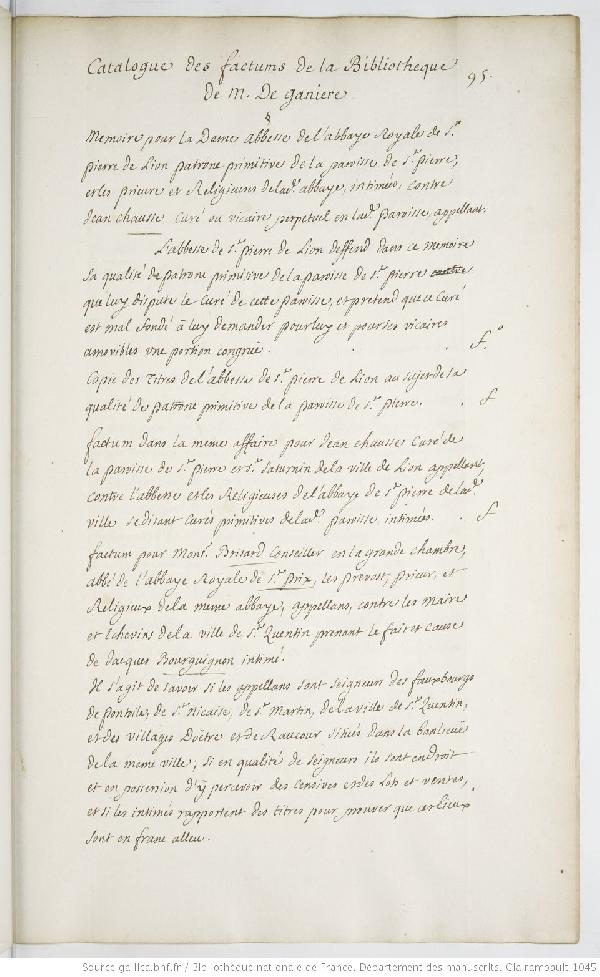 Catalogue des factums de la Bibliotheque
95.
de M. De ganiere
Memoire pour la Dame abbesse de l'abbaye Royale de St.
pierre de Lion patrone primitives de la paroisse de St. pierre,
et les prieure et Religieuses de lad. abbaye, intimées, contre
Jean chausse Curé ou vicaire perpetuel en lad. paroisse, appellant.
L'abbesse de St. pierre de Lion deffend dans ce memoire
sa qualité de patrone primitive de la paroisse de St. pierre
que luy dispute le Curé de cette paroisse, et pretend que ce Curé
est mal fondé à luy demander pour luy et pour ses vicaires
amovibles une portion congrue. f.o
Copie des Titres de l'abbesse de St. pierre de Lion au sujet de sa
qualité de patrone primitive de la paroisse de St. pierre. f
factum dans la meme affaire pour Jean chausse Curé de
la paroisse de St. pierre et St. Saturnin de la ville de Lion appellant,
contre l'abbesse et les Religieuses de l'abbaye de St. pierre de lad.
ville se disant Curés primitives de lad. paroisse, intimées. f
factum pour Monsr. Brisard Conseiller en la grande chambre,
abbé de l'abbaye Royale de St. prix, les prevost, prieur, et
Religieux de la meme abbaye, appellans, contre les Maire
et Echevins de la ville de St. Quentin prenant le fait et cause
de Jacques Bourguignon intimé.
Il s'agit de savoir si les appellans sont seigneurs des fauxbourgs
de pontoile, de St. Nicaise, de St. Martin, de la ville de St. Quentin,
et des villages Doëtre et de Raucour situés dans la banlieüe
de la meme ville, si en qualité de seigneurs ils sont en droit
et en possession d'ÿ percevoir des censives et des Lots et ventes,
et si les intimés rapportent des titres pour prouver que ces lieux
sont en franc alleu.
Source gallica.bnf.fr / Bibliothèque nationale de France. Département des manuscrits. Clairambault 1045